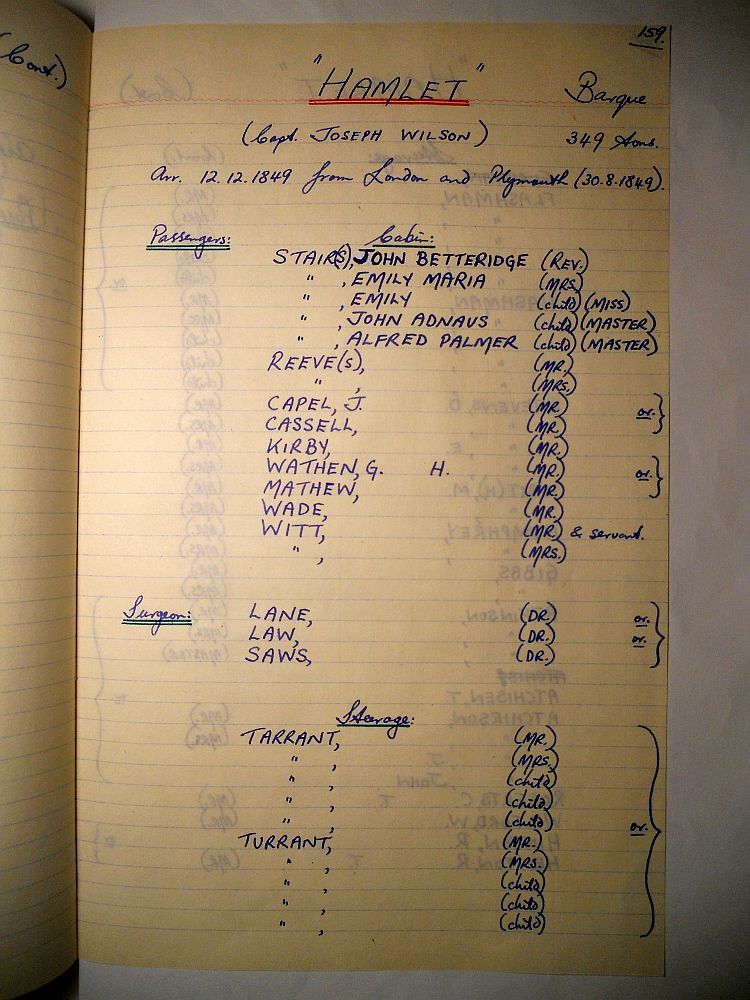 (Cont.)
159.
"HAMLET" Barque
(Capt. JOSEPH WILSON) 349 tons.
Arr. 12.12.1849 from London and Plymouth (30.8.1849).
Passengers: Cabin:
STAIR(S), JOHN BETTERIDGE (REV.)
" , EMILY MARIA (MRS.)
" , EMILY (child) (MISS)
" , JOHN ADNAUS (child) (MASTER)
" , ALFRED PALMER (child) (MASTER)
REEVE(S), (MR.)
" , (MRS.)
CAPEL, J. (MR.) or. }
CASSELL, (MR.)
KIRBY, (MR.)
WATHEN, G. H. (MR.) or. }
MATHEW, (MR.)
WADE, (MR.)
WITT, (MR.) & servant.
" , (MRS.)
Surgeon: LANE, (DR.) or. }
LAW, (DR.) or.
SAWS, (DR.)
Steerage:
TARRANT, (MR.)
" , (MRS.)
" , (child)
" , (child)
" , (child) or. }
TURRANT, (MR.)
" , (MRS.)
" , (child)
" , (child)
" , (child)